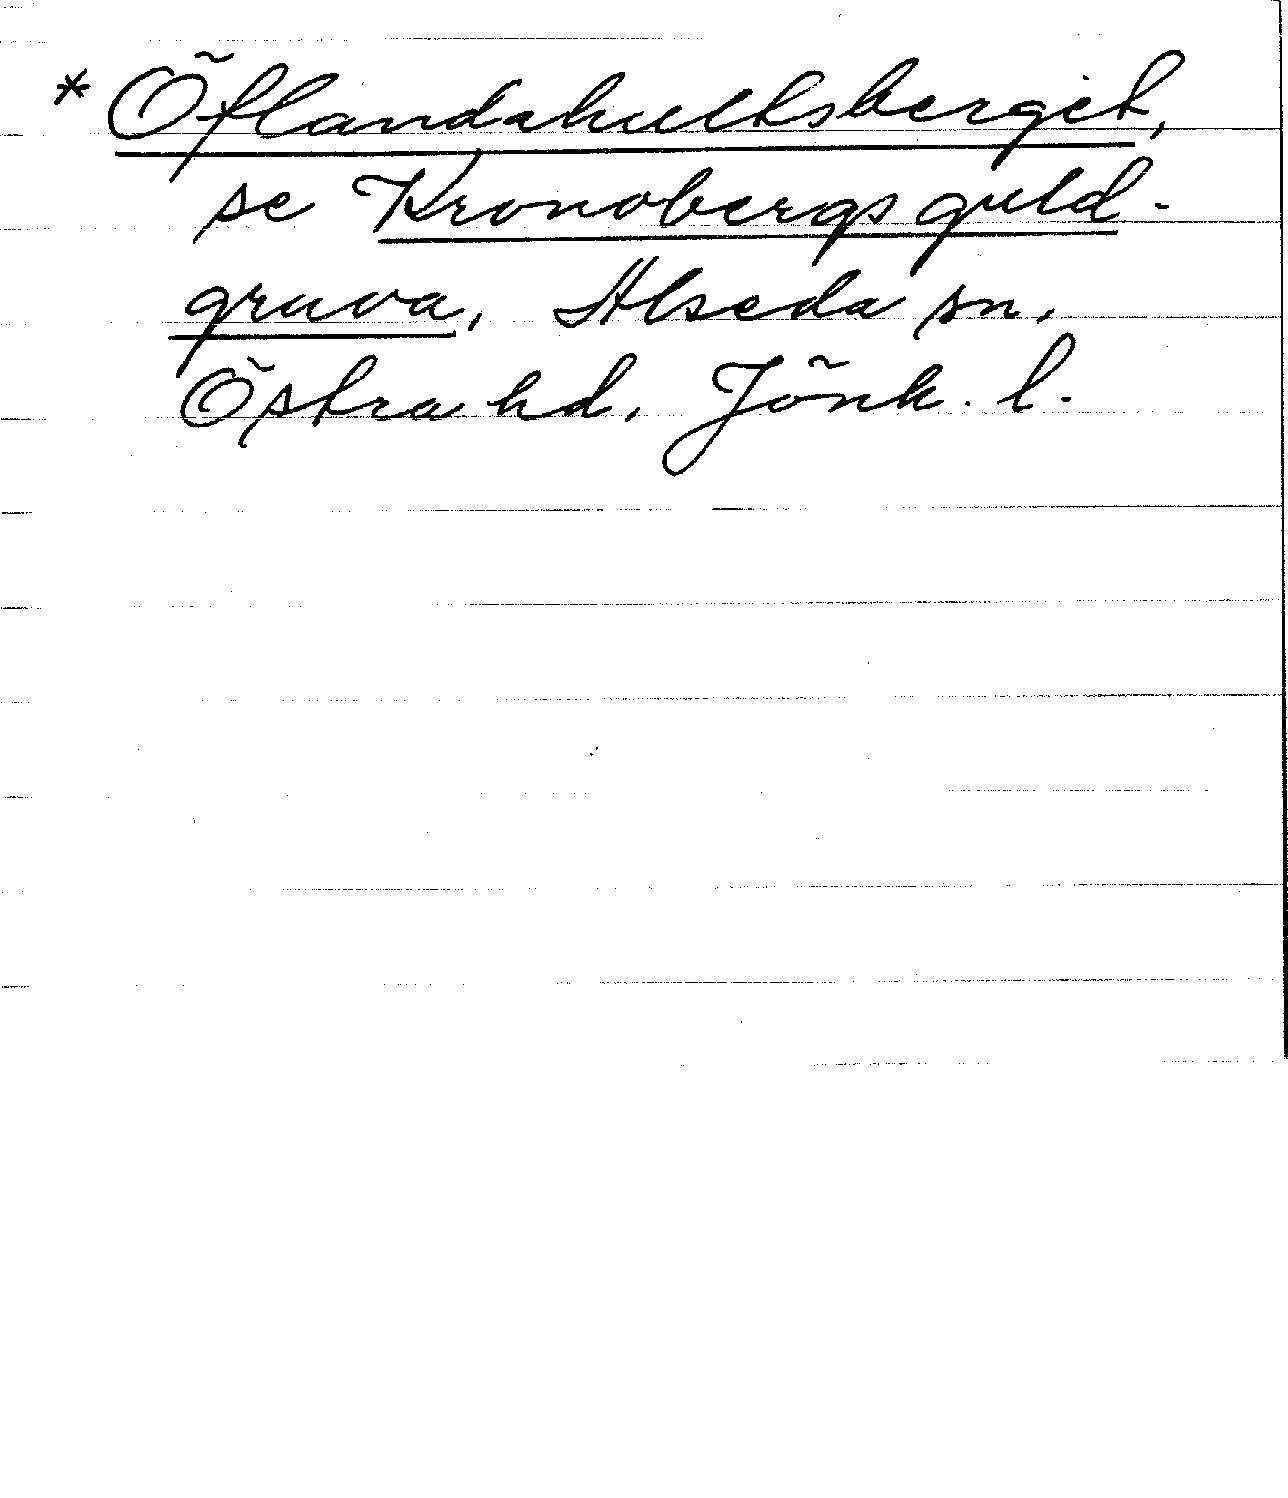 * Öflandahultsberget,
se Kronobergs guld-
gruva, Alseda sn,
Östra hd, Jönk. l.